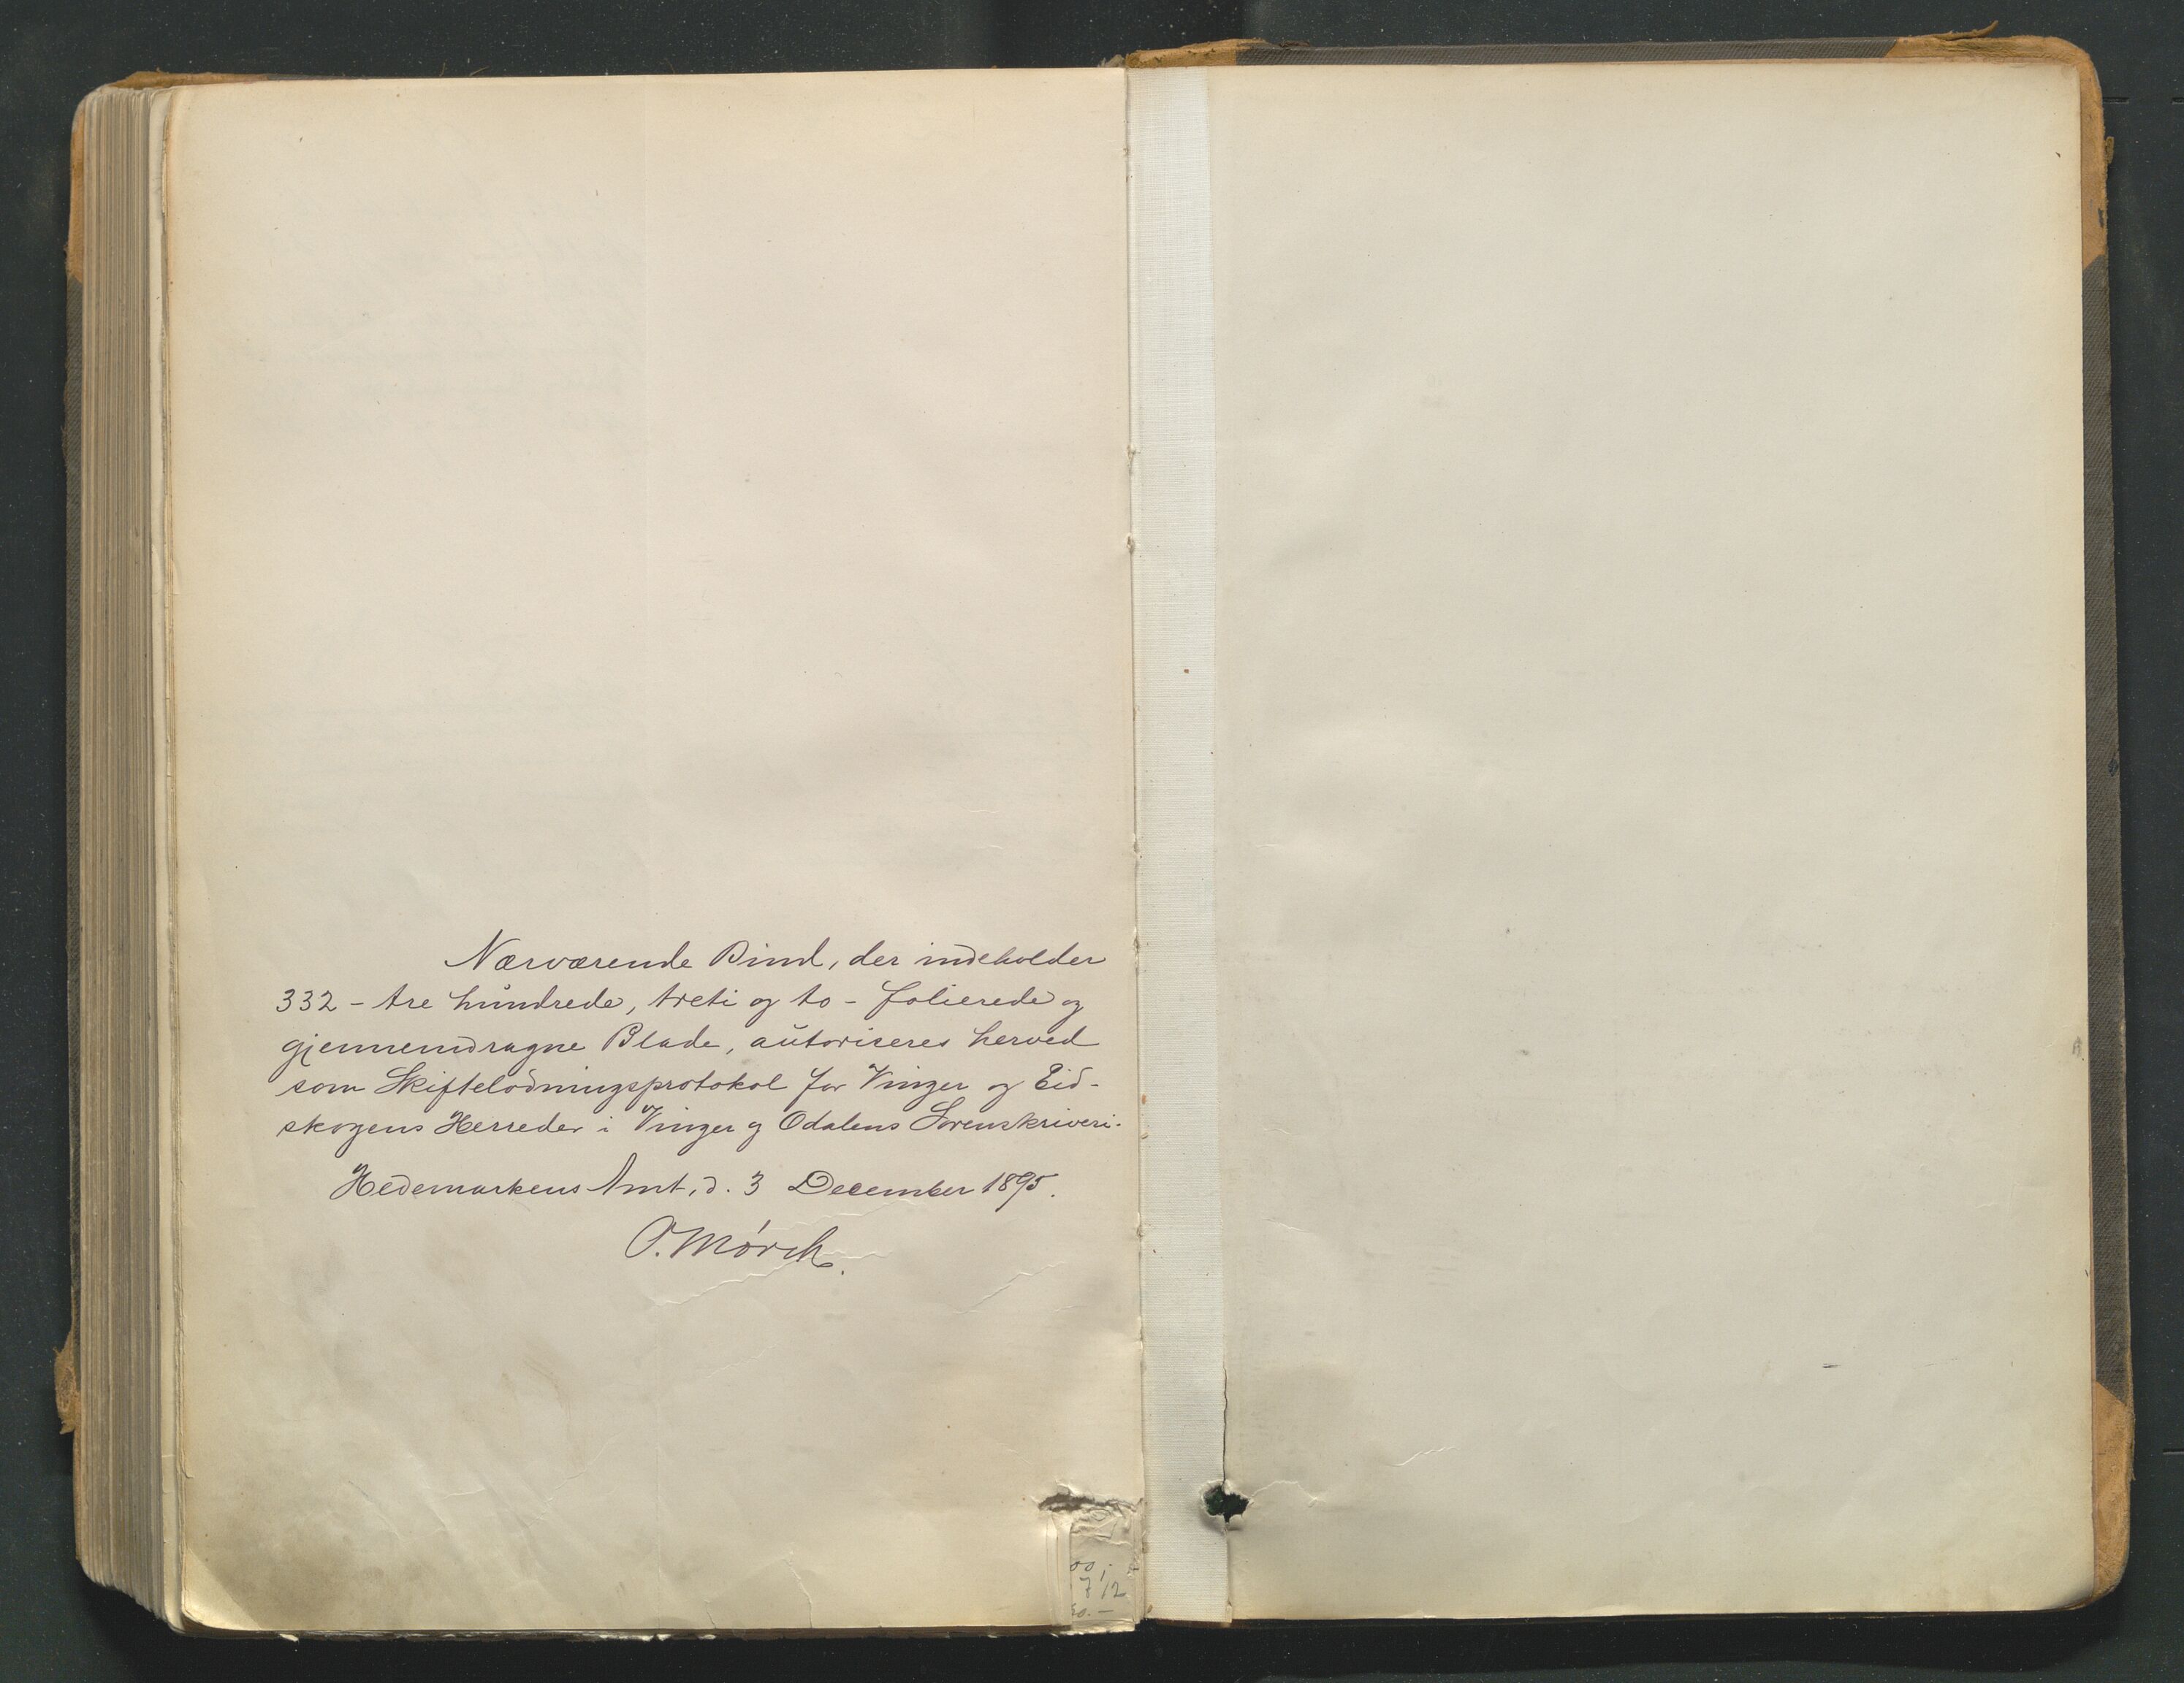 Nærværende Bind, der indeholder
332 - tre hundrede, treti og to - folierede og
gjennemdragne Blade, autoriseres herved
som Skifteloðningsprotokol for Vinger og Eid-
skogens Herreder i Vinger og Odalens Sorenskriveri.
Hedemarkens Amt, d. 3 December 1895.
O. Mörch.
00
7 12
50. -